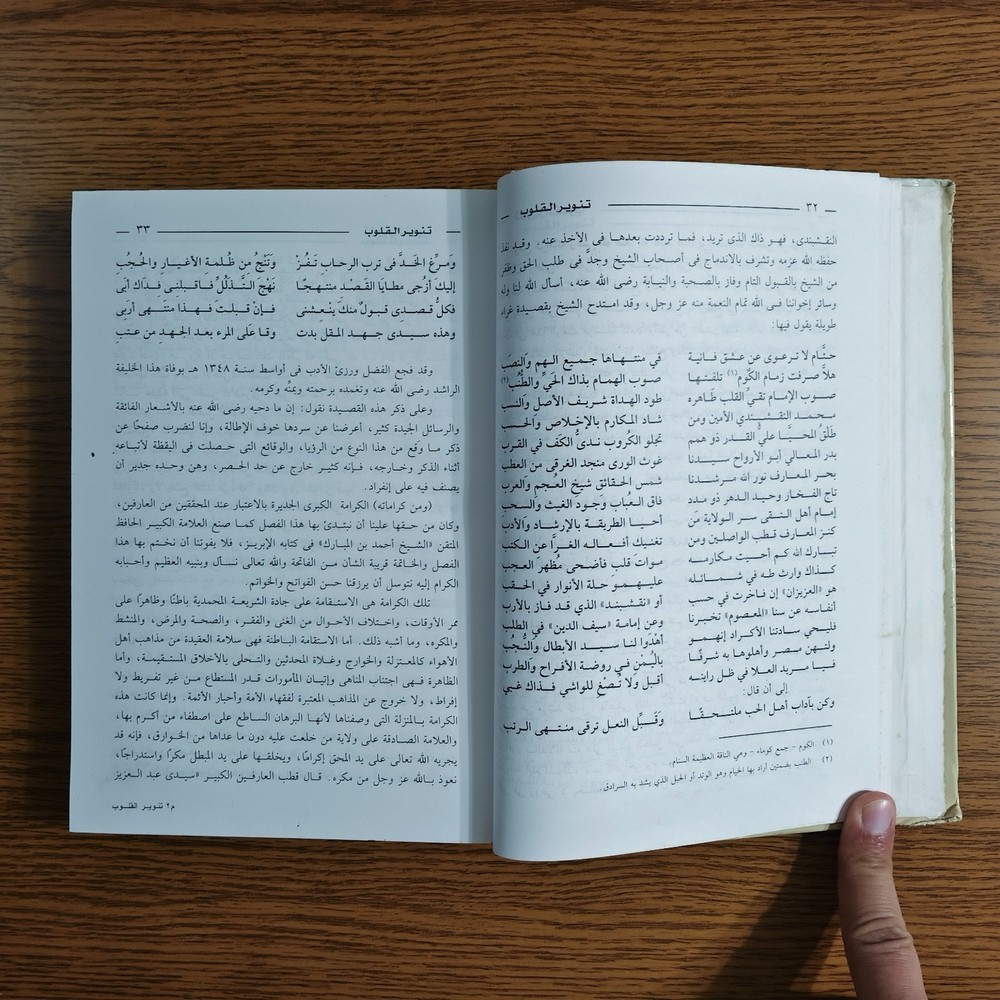 ٣٢ تنوير القلوب
النقشبندى، فهو ذاك الذى تريد، فما ترددت بعدها فى الأخذ عنه. وقد نفذ
حفظه الله عزمه وتشرف بالاندماج فى أصحاب الشيخ وجدَّ فى طلب الحق وظفر
من الشيخ بالقبول التام وفاز بالصحبة والنيابة رضى الله عنه، أسأل الله لنا وله
وسائر إخواننا فى الله تمام النعمة منه عز وجل، وقد امتدح الشيخ بقصيدة غراء
طويلة يقول فيها:
حتَّام لا ترعوى عن عشق فانية في منتهاها جميع الهم والنصَب
هلاَّ صرفت زمام الكُوم(١) تلفتها صوب الهمام بذاك الحَيِّ والطُنُب(٢)
صوب الإمام تقيِّ القلب طاهره طود الهداة شريف الأصل والنسب
محمد النقشبندي الأمين ومن شاد المكارم بالإخلاص والحسب
طَلْقُ المحيَّا عليُّ القدر ذو همم تجلو الكُروب ندىُّ الكَف في القرب
بدر المعالي أبو الأرواح سيدنا غوث الورى منجد الغرقى من العطب
بحر المعارف نور الله مرشدنا شمس الحقائق شيخ العُجم والعرب
تاج الفخار وحيد الدهر ذو مدد فاق العُباب وجود الغيث والسحب
إمام أهل التقى سر الولاية من أحيا الطريقة بالإرشاد والأدب
كنز المعارف قطب الواصلين ومن تغنيك أفعاله الغرَّا عن الكتب
تبارك الله كم أحيت مكارمه مواتَ قلب فأضحى مُظهرَ العجب
كذاك وارث طه في شمائله عليهمو حلة الأنوار في الحقب
هو «العزيزان» إن فاخرت في حسب أو «نقشبند» الذي قد فاز بالأرب
أنفاسه عن سنا «المعصوم» تخبرنا وعن إمامة «سيف الدين» في الطلب
فليحي سادتنا الأكراد إنهمو أهْدَوا لنا سيد الأبطال والنُّجُب
ولتهن مصر وأهلوها به شرفًا باليُمن في روضة الأفراح والطرب
فيا مريد العلا في ظل رايته أقبل ولا تُصْغ للواشي فذاك غبي
إلى أن قال:
وكن بآداب أهل الحب ملتحقًا وَقَبِّل النعل ترقى منتهى الرتب
(١) الكوم - جمع كوماء - وهي الناقة العظيمة السنام.
(٢) الطنب بضمتين أراد بها الخيام وهو الوتد أو الحبل الذي يشد به السرادق.
تنوير القلوب ٣٣
ومَرِّغ الخَدَّ فى ترب الرحاب تَفُزْ وَتَنْجُ من ظُلمةِ الأغيار والحُجُب
إليكَ أزْجى مطايَا القَصْد منتهجًا نَهْجَ التَّذلُّلِ فاقبلنِى فدَاك أبى
فكلُّ قصدِى قبولٌ منكَ يَنْعشنى فإنْ قبلتَ فهذا منتَهى أربى
وهذه سيدى جهد المقل بدت وقا عَلى المرء بعد الجهد من عتب
وقد فجع الفضل ورزئ الأدب فى أواسط سنة ١٣٤٨ هـ بوفاة هذا الخليفة
الراشد رضى الله عنه وتغمده برحمته وبمنِّه وكرمه.
وعلى ذكر هذه القصيدة نقول: إن ما دحيه رضى الله عنه بالأشعار الفائقة
والرسائل الجيدة كثير، أعرضنا عن سردها خوف الإطالة، وإنا لنضرب صفحًا عن
ذكر ما وقع من هذا النوع من الرؤيا، والوقائع التى حصلت فى اليقظة لأتباعه
أثناء الذكر وخارجه، فإنه كثير خارج عن حد الحصر، وهن وحده جدير أن
يصنف فيه على إنفراد.
(ومن كراماته) الكرامة الكبرى الجديرة بالاعتبار عند المحققين من العارفين،
وكان من حقها علينا أن نبتدئ بها هذا الفصل كما صنع العلامة الكبير الحافظ
المتقن «الشيخ أحمد بن المبارك» فى كتابه الإبريز، فلا يفوتنا أن نختم بها هذا
الفصل والخاتمة قريبة الشأن من الفاتحة والله تعالى نسأل وبنبيه العظيم وأحبابه
الكرام إليه نتوسل أن يرزقنا حسن الفواتح والخواتم.
تلك الكرامة هى الاستقامة على جادة الشريعة المحمدية باطنًا وظاهرًا على
ممر الأوقات، واختلاف الأحوال من الغنى والفقر، والصحة والمرض، والمنشط
والمكره، وما أشبه ذلك. أما الاستقامة الباطنة فهى سلامة العقيدة من مذاهب أهل
الأهواء كالمعتزلة والخوارج وغلاة المحدثين والتحلى بالأخلاق المستقيمة، وأما
الظاهرة فهى اجتناب المناهى وإتيان المأمورات قدر المستطاع من غير تفريط ولا
إفراط، ولا خروج عن المذاهب المعتبرة لفقهاء الأمة وأحبار الأئمة. وإنما كانت هذه
الكرامة بالمنزلة التى وصفناها لأنها البرهان الساطع على اصطفاء من أكرم بها،
والعلامة الصادقة على ولاية من خلعت عليه دون ما عداها من الخوارق، فإنه قد
يجريه الله تعالى على يد المحق إكرامًا، ويخلقها على يد المبطل مكرًا واستدراجًا،
نعوذ بالله عز وجل من مكره. قال قطب العارفين الكبير «سيدى عبد العزيز
م٢ تنوير القلوب